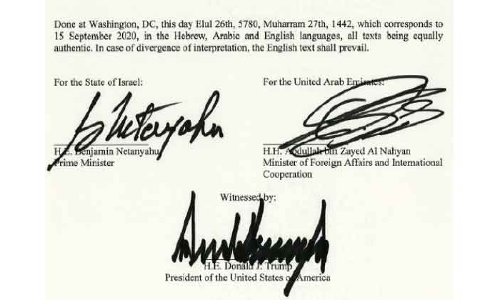 Done at Washington, DC, this day Elul 26th, 5780, Muharram 27th, 1442, which corresponds to
15 September 2020, in the Hebrew, Arabic and English languages, all texts being equally
authentic. In case of divergence of interpretation, the English text shall prevail.
For the State of Israel:
For the United Arab Emirates:
B Netanyahu
H.E. Benjamin Netanyahu
Prime Minister
H.H. Abdullah bin Zayed Al Nahyan
Minister of Foreign Affairs and International
Cooperation
Witnessed by:
H.E. Donald J. Trump
President of the United States of America